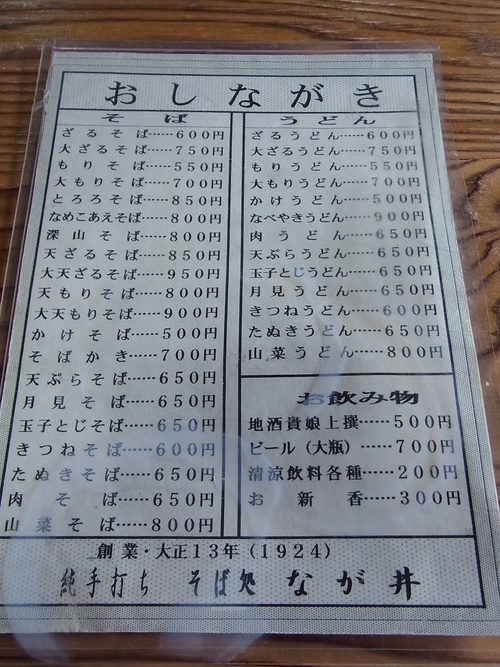 おしながき
そば
ざるそば……600円
大ざるそば……750円
もりそば……550円
大もりそば……700円
とろろそば……850円
なめこあえそば……800円
深山そば……800円
天ざるそば……850円
大天ざるそば……950円
天もりそば……800円
大天もりそば……900円
かけそば……500円
そばかき……700円
天ぷらそば……650円
月見そば……650円
玉子とじそば……650円
きつねそば……600円
たぬきそば……650円
肉そば……650円
山菜そば……800円
うどん
ざるうどん……600円
大ざるうどん……750円
もりうどん……550円
大もりうどん……700円
かけうどん……500円
なべやきうどん……900円
肉うどん……650円
天ぷらうどん……650円
玉子とじうどん……650円
月見うどん……650円
きつねうどん……600円
たぬきうどん……650円
山菜うどん……800円
お飲み物
地酒貴娘上撰……500円
ビール(大瓶)……700円
清涼飲料各種……200円
お新香……300円
創業・大正13年(1924)
純手打ち そば処 なが井